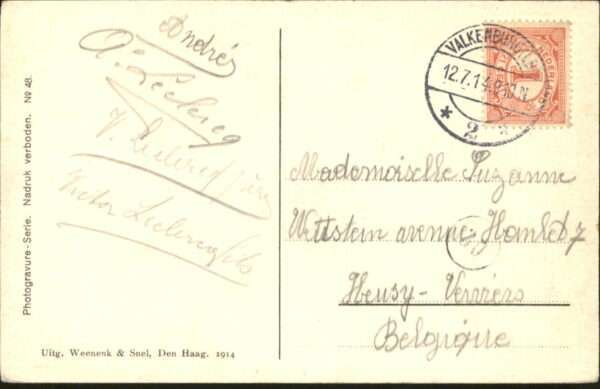 André
A. Leclercq
V. Leclercq père
Victor Leclercq fils
VALKENBURG
12.7.14.9-10 N
* 2 *
NEDERLAND
1
Mademoiselle Suzanne
Wettstein avenue Hamlet 7
Heusy-Verviers
Belgique
Photogravure-Serie. Nadruk verboden. No 48.
Uitg. Weenenk & Snel, Den Haag. 1914